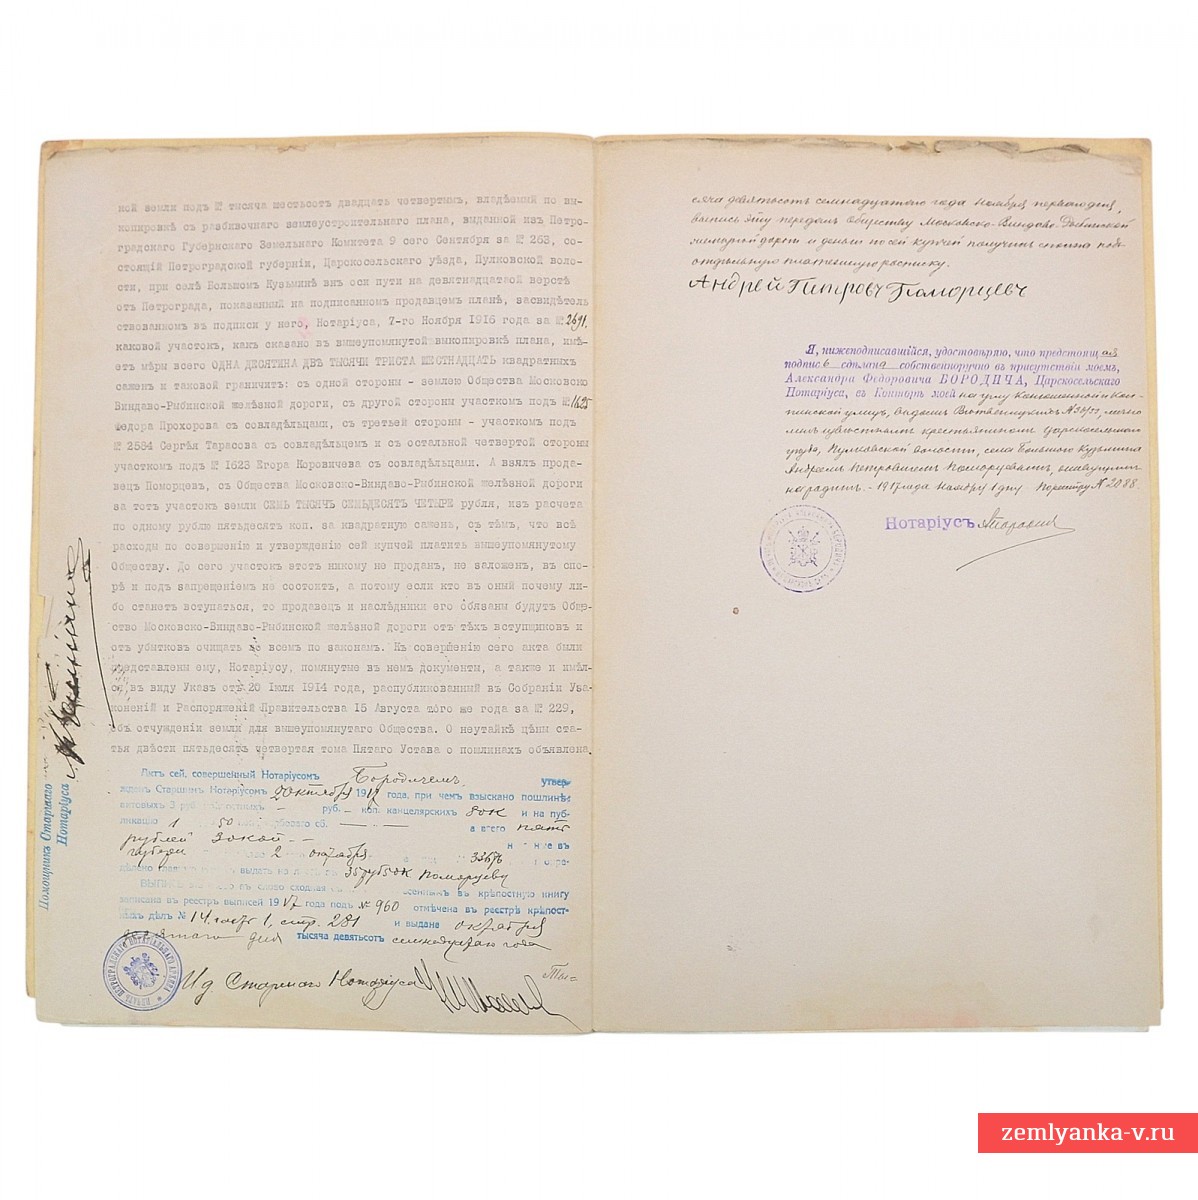 ной земли подъ № тысяча шестьсот двадцать четвертым, владѣемий по вы-
копировкѣ съ разбивочнаго землеустроительнаго плана, выданной из Петро-
градскаго Губернскаго Земельнаго Комитета 9 сего Сентября за № 263, со-
стоящій Петроградской губерніи, Царскосельскаго уѣзда, Пулковской воло-
сти, при селѣ Большомъ Кузьминѣ внѣ оси пути на девятнадцатой верстѣ
от Петрограда, показанный на подписанномъ продавцемъ планѣ, засвидѣтель
ствованномъ въ подписи у него, Нотаріуса, 7-го Ноября 1916 года за № 2691,
каковой участокъ, какъ сказано въ вышеупомянутой выкопировкѣ плана, имѣ-
етъ мѣры всего ОДНА ДЕСЯТИНА ДВѢ ТЫСЯЧИ ТРИСТА ШЕСТНАДЦАТЬ квадратныхъ
саженъ и таковой граничитъ: съ одной стороны - землею Общества Московско
Виндаво-Рыбинской желѣзной дороги, съ другой стороны участкомъ подъ № 1625
Федора Прохорова съ совладѣльцами, съ третьей стороны - участкомъ подъ
№ 2584 Сергѣя Тарасова съ совладѣльцемъ и съ остальной четвертой стороны
участкомъ подъ № 1623 Егора Коровичева съ совладѣльцами. А взялъ прода-
вецъ Поморцевъ, съ Общества Московско-Виндаво-Рыбинской желѣзной дороги
за тотъ участокъ земли СЕМЬ ТЫСЯЧЪ СЕМЬДЕСЯТЪ ЧЕТЫРЕ рубля, изъ расчета
по одному рублю пятьдесятъ коп. за квадратную сажень, съ тѣмъ, что всѣ
расходы по совершению и утвержденію сей купчей платить вышеупомянутому
Обществу. До сего участокъ этотъ никому не проданъ, не заложенъ, въ спо-
рѣ и подъ запрещеніемъ не состоитъ, а потому если кто въ оный почему ли-
бо станетъ вступаться, то продавецъ и наслѣдники его обязаны будутъ Обще-
ство Московско-Виндаво-Рыбинской желѣзной дороги отъ тѣхъ вступщиковъ и
отъ убытковъ очищать во всемъ по законамъ. Къ совершенію сего акта были
представлены ему, Нотаріусу, помянутые въ немъ документы, а также и имѣл-
ся въ виду Указъ отъ 20 Іюля 1914 года, распубликованный въ Собраніи Уза-
коненій и Распоряженій Правительства 15 Августа того же года за № 229,
объ отчужденіи земли для вышеупомянутаго Общества. О неутайкѣ цѣны ста-
тья двѣсти пятьдесятъ четвертая тома Пятаго Устава о пошлинахъ объявлена.
Актъ сей, совершенный Нотаріусомъ Бородичемъ утвер-
жденъ Старшимъ Нотаріусомъ 2 октября 1917 года, при чемъ взыскано пошлинъ:
актовыхъ 3 руб. руб. — коп. канцелярскихъ 80к и на пуб-
ликацію 1 50 сб. — а всего пять
рублей 30 коп - -
2 октября 3367
выдать 35 руб 50к Поморцеву
ВЫПИСЬ слово въ слово сходная въ крѣпостную книгу
записана въ реестръ выписей 1917 года подъ № 960 отмѣчена въ реестрѣ крѣпост-
ныхъ дѣлъ № 14 часть 1, стр. 281 и выдана октября
девятаго дня тысяча девятьсотъ семнадцатаго года
И д Старшаго Нотаріуса
Тыс-
Помощникъ Старшаго
Нотаріуса
ПЕЧАТЬ ПЕТРОГРАДСКАГО НОТАРІАЛЬНАГО АРХИВА
сяча девятьсотъ семнадцатаго года Ноября перваго дня,
выпись эту передалъ Обществу Московско-Виндаво-Рыбинской
желѣзной дороги и деньги по сей купчей получилъ сполна подъ
отдѣльную платежную росписку.
Андрей Петровъ Поморцевъ
Я, нижеподписавшійся, удостовѣряю, что предстоящая
подпись сдѣлана собственноручно въ присутствіи моемъ,
Александра Федоровича БОРОДИЧА, Царскосельскаго
Нотаріуса, въ Конторѣ моей на углу Конюшенной и Кол-
пинской улицъ, въ домѣ № 36/22, лично
мнѣ извѣстнымъ крестьяниномъ Царскосельскаго
уѣзда, Пулковской волости, села Большого Кузьмина
Андреемъ Петровичемъ Поморцевымъ, живущимъ
на родинѣ. - 1917 года Ноября 1 дня По реестру № 2088.
Нотаріусъ Бородичъ
zemlyanka-v.ru